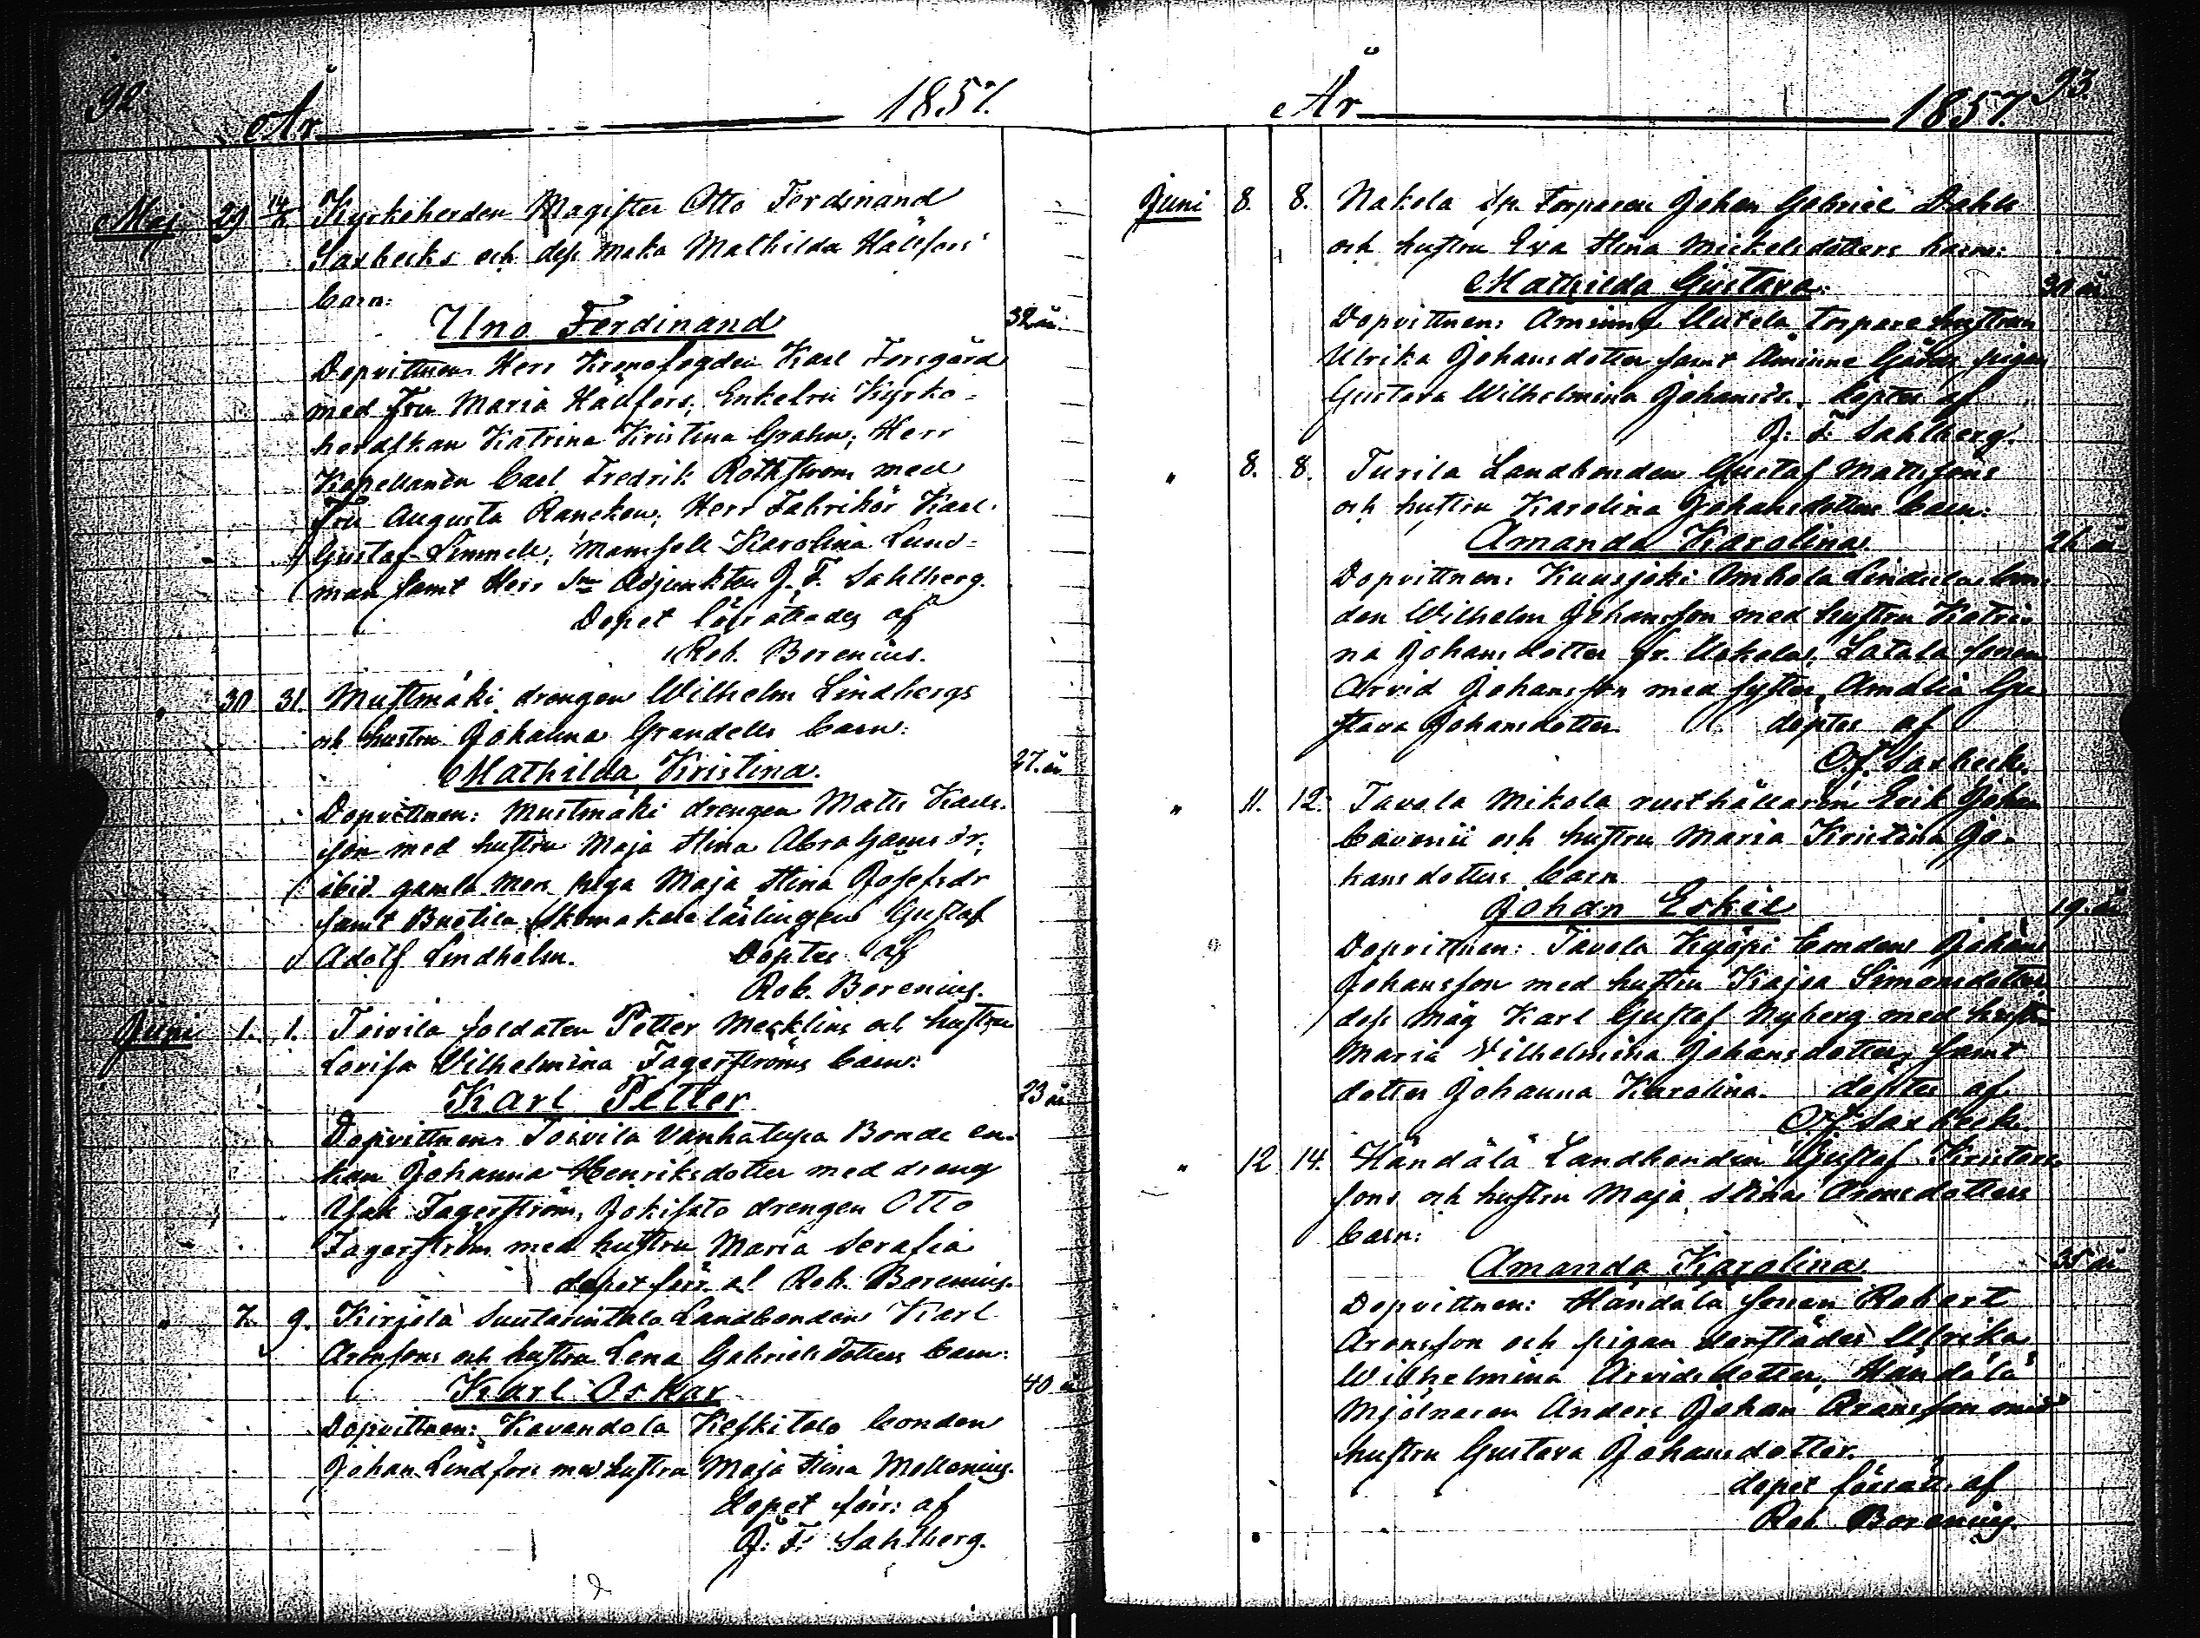 92
År 1857.
Maj 29 14/6 Kyrkoherden Magister Otto Ferdinand
Saxbecks och dess maka Mathilda Hällfors'
barn:
Uno Ferdinand 32 år.
Dopvittnen: Herr Kronofogden Karl Forsgård
med Fru Maria Hällfors, Enkefru Kyrko-
herdskan Katrina Kristina Grahn; Herr
Kapellanen Carl Fredrik Rothström med
Fru Augusta Rancken; Herr Fabrikör Karl
Gustaf Limnell; Mamsell Karolina Lund-
man samt Herr Sn Adjunkten J. F. Sahlberg.
Dopet förrättades af
Rob. Borenius.
" 30 31. Mustmäki drengen Wilhelm Lindbergs
och hustru Johanna Grandells barn:
Mathilda Kristina. 27. år
Dopvittnen: Mustmäki drengen Matts Karls-
son med hustru Maja Stina Abrahamsdr,
ibid. gamla mor. piga Maja Stina Josefsdr
samt Bustila Skomakare lärlingen Gustaf
Adolf Lindholm. Döptes af
Rob. Borenius.
Juni 1. 1. Toivila soldaten Petter Mecklins och hustru
Lovisa Vilhelmina Fagerströms barn:
Karl Petter 23 år
Dopvittnen: Toivila Vanhatupa Bonde en-
kan Johanna Henriksdotter med dreng
Isak Fagerström, Jokisato drengen Otto
Fagerström med hustru Maria Serafia
dopet förr. af Rob. Borenius.
" 7. 9. Kirjola Suutarintalo Landbonden Karl
Aronsons och hustru Lena Gabrielsdotters barn:
Karl Oskar 40 år
Dopvittnen: Kavandola Keskitalo bonden
Johan Lindfors med hustru Maja Stina Mellenius.
dopet förr: af
J. F. Sahlberg.
93
År 1857.
Juni 8. 8. Nakola Sp. Torparen Johan Gabriel Dahls
och hustru Eva Stina Mickelsdotters barn:
Mathilda Gustava. 30 år
Dopvittnen: Åminne Uutela Torpare hustrun
Ulrika Johansdotter samt Åminne Gårds pigan
Gustava Wilhelmina Johansdr. döptes af
J. F. Sahlberg.
" 8. 8. Turila Landbonden Gustaf Mattssons
och hustru Karolina Johansdotters barn:
Amanda Karolina. 26 år
Dopvittnen: Kuusjoki Imhola Lindula bon-
den Wilhelm Johansson med hustru Katri-
na Johansdotter fr. Uskela, Latala sonen
Arvid Johansson med syster Amalia Gu-
stava Johansdotter. döptes af
O. F. Saxbeck
" 11. 12. Tavola Mikola rusthållaren Erik Johan
Cavonii och hustru Maria Kristina Jo-
hansdotters barn
Johan Eskil 19. år
Dopvittnen: Tavola Kyöpi bonden Johan
Johansson med hustru Kajsa Simonsdotter
dess måg Karl Gustaf Nyberg med hustru
Maria Vilhelmina Johansdotter samt
dotter Johanna Karolina. döptes af
O. F. Saxbeck
" 12 14. Händälä Landbonden Gustaf Kristers-
sons och hustru Maja Stina Aronsdotters
barn:
Amanda Karolina. 35 år
Dopvittnen: Händälä sonen Robert
Aronsson och pigan derstädes Ulrika
Wilhelmina Arvidsdotter, Händälä
Mjölnaren Anders Johan Aronsson med
hustru Gustava Johansdotter.
dopet förrätt. af
Rob. Borenius.